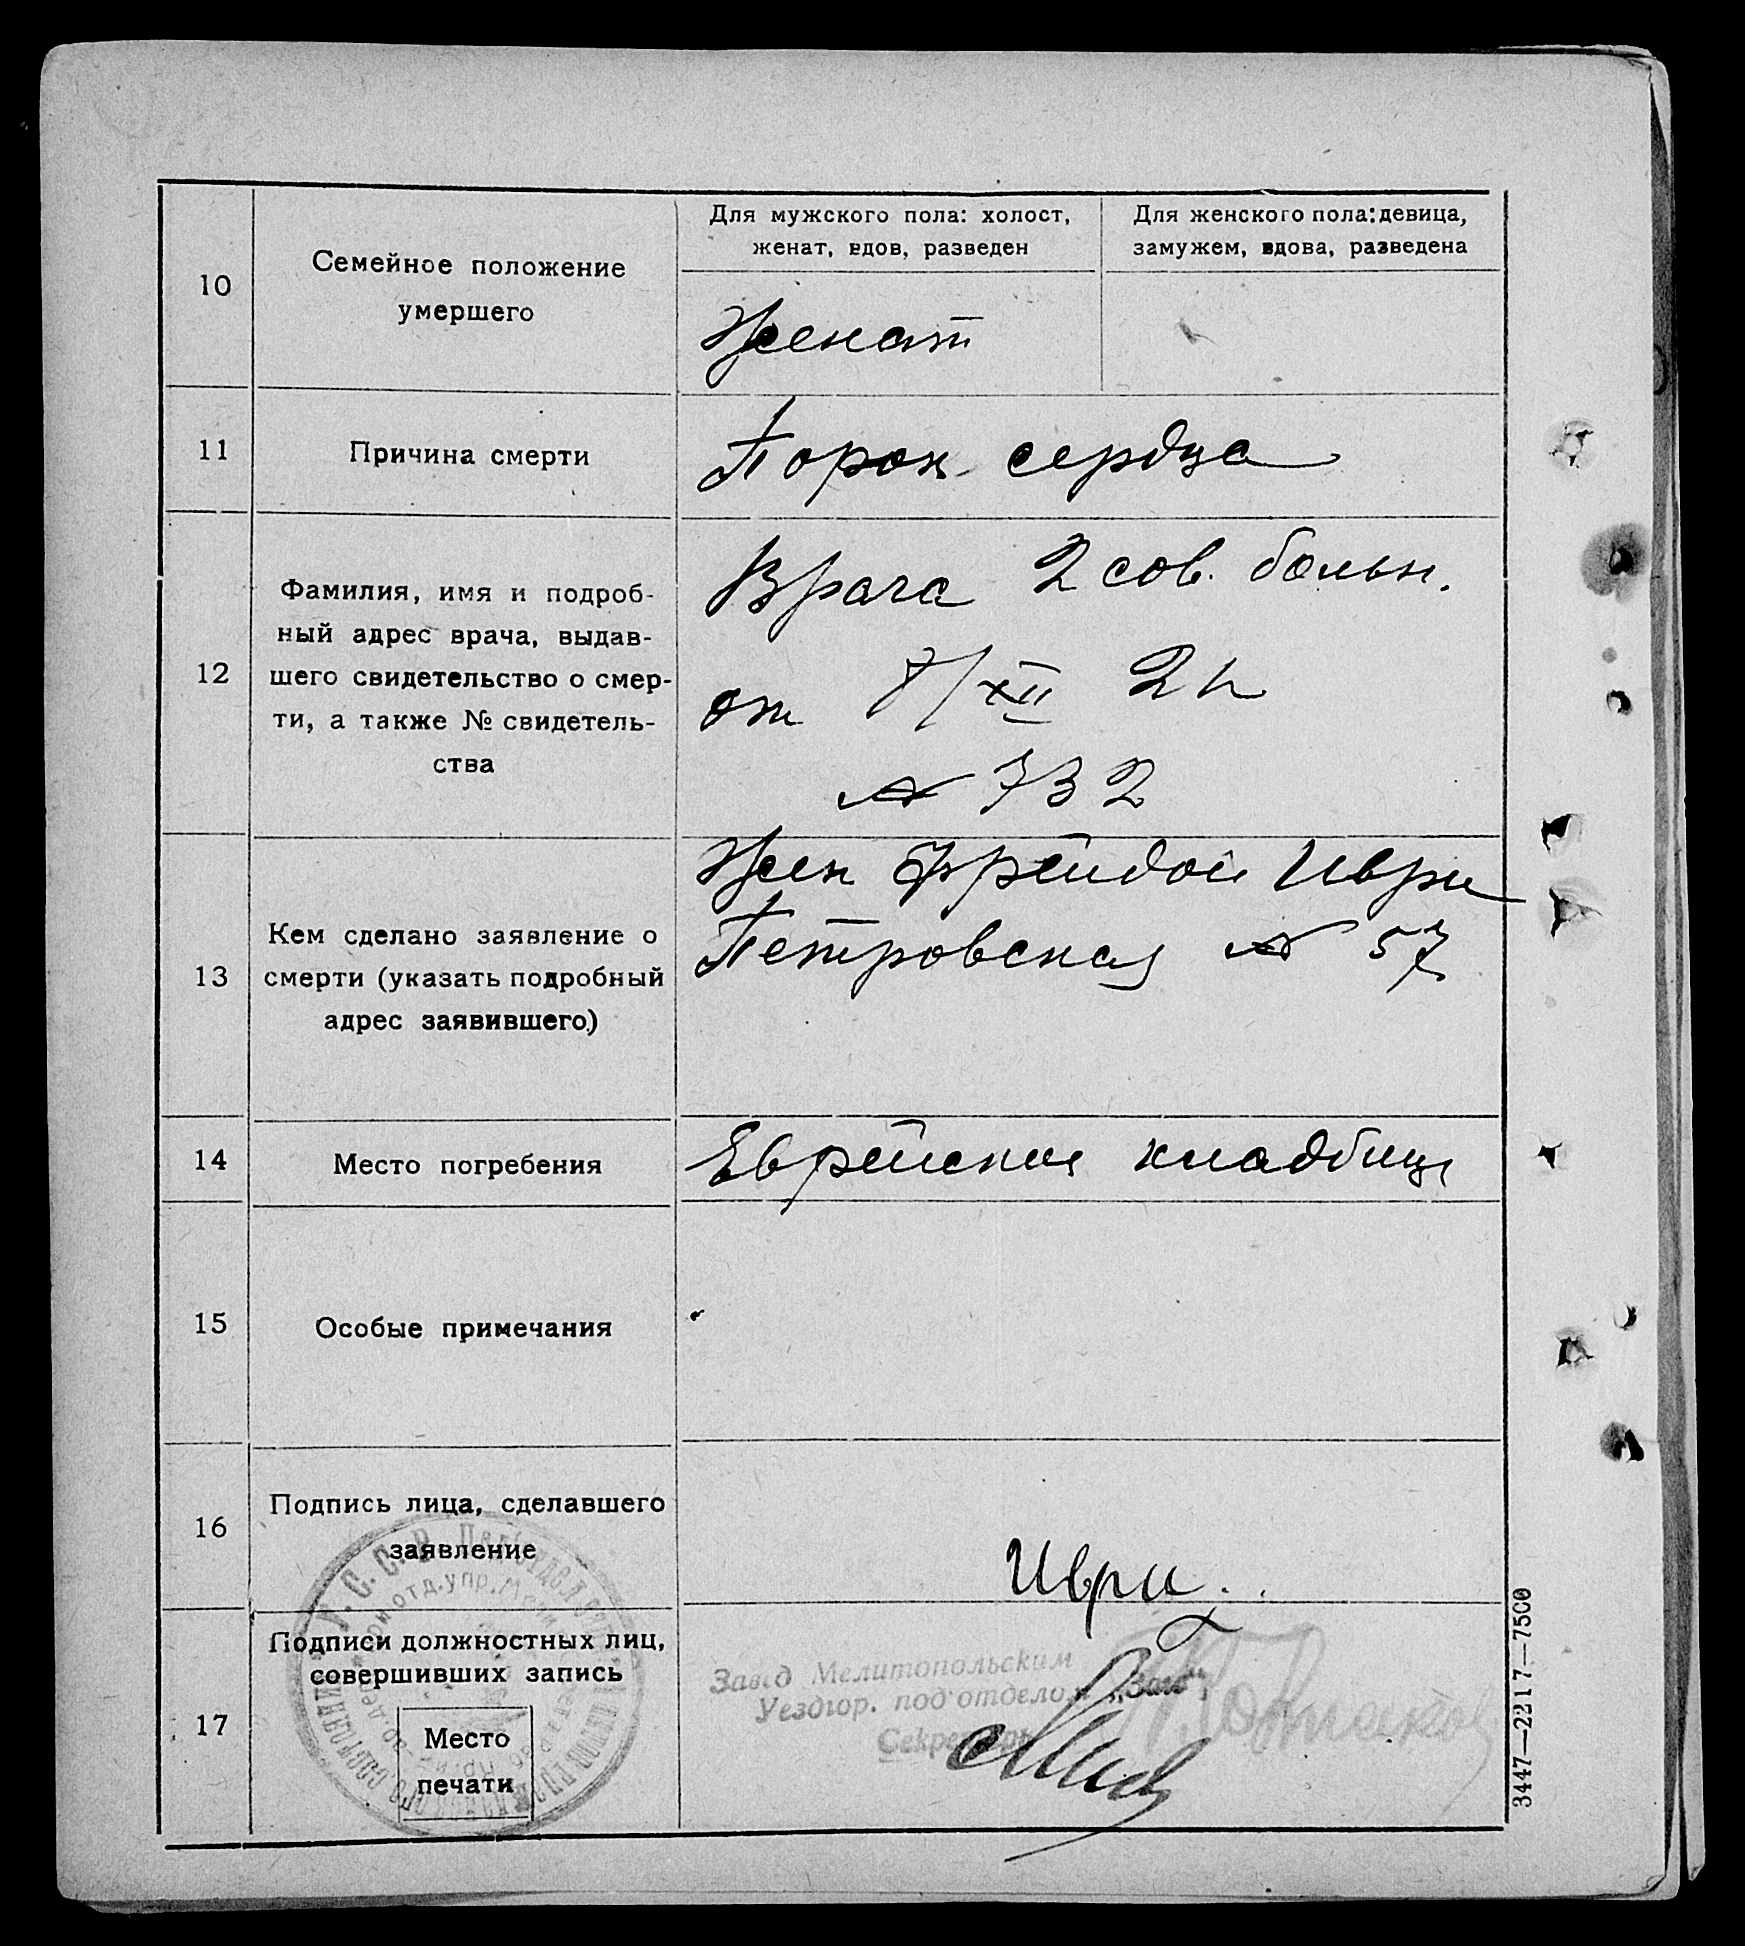 10
Семейное положение
умершего
Для мужского пола: холост,
женат, вдов, разведен
Для женского пола: девица,
замужем, вдова, разведена
Женат
11
Причина смерти
Порок сердца
12
Фамилия, имя и подроб-
ный адрес врача, выдав-
шего свидетельство о смер-
ти, а также № свидетель-
ства
Врача 2 сов. больн.
от 7/XII 21
№ 732
13
Кем сделано заявление о
смерти (указать подробный
адрес заявившего)
Жен Фрейдой Иври
Петровская № 57
14
Место погребения
Еврейское кладбище
15
Особые примечания
16
Подпись лица, сделавшего
заявление
Иври
17
Подписи должностных лиц,
совершивших запись
Место
печати
Завед Мелитопольским
Уездгор. под'отделом „Загс"
Секретарь
3447—2217—7500